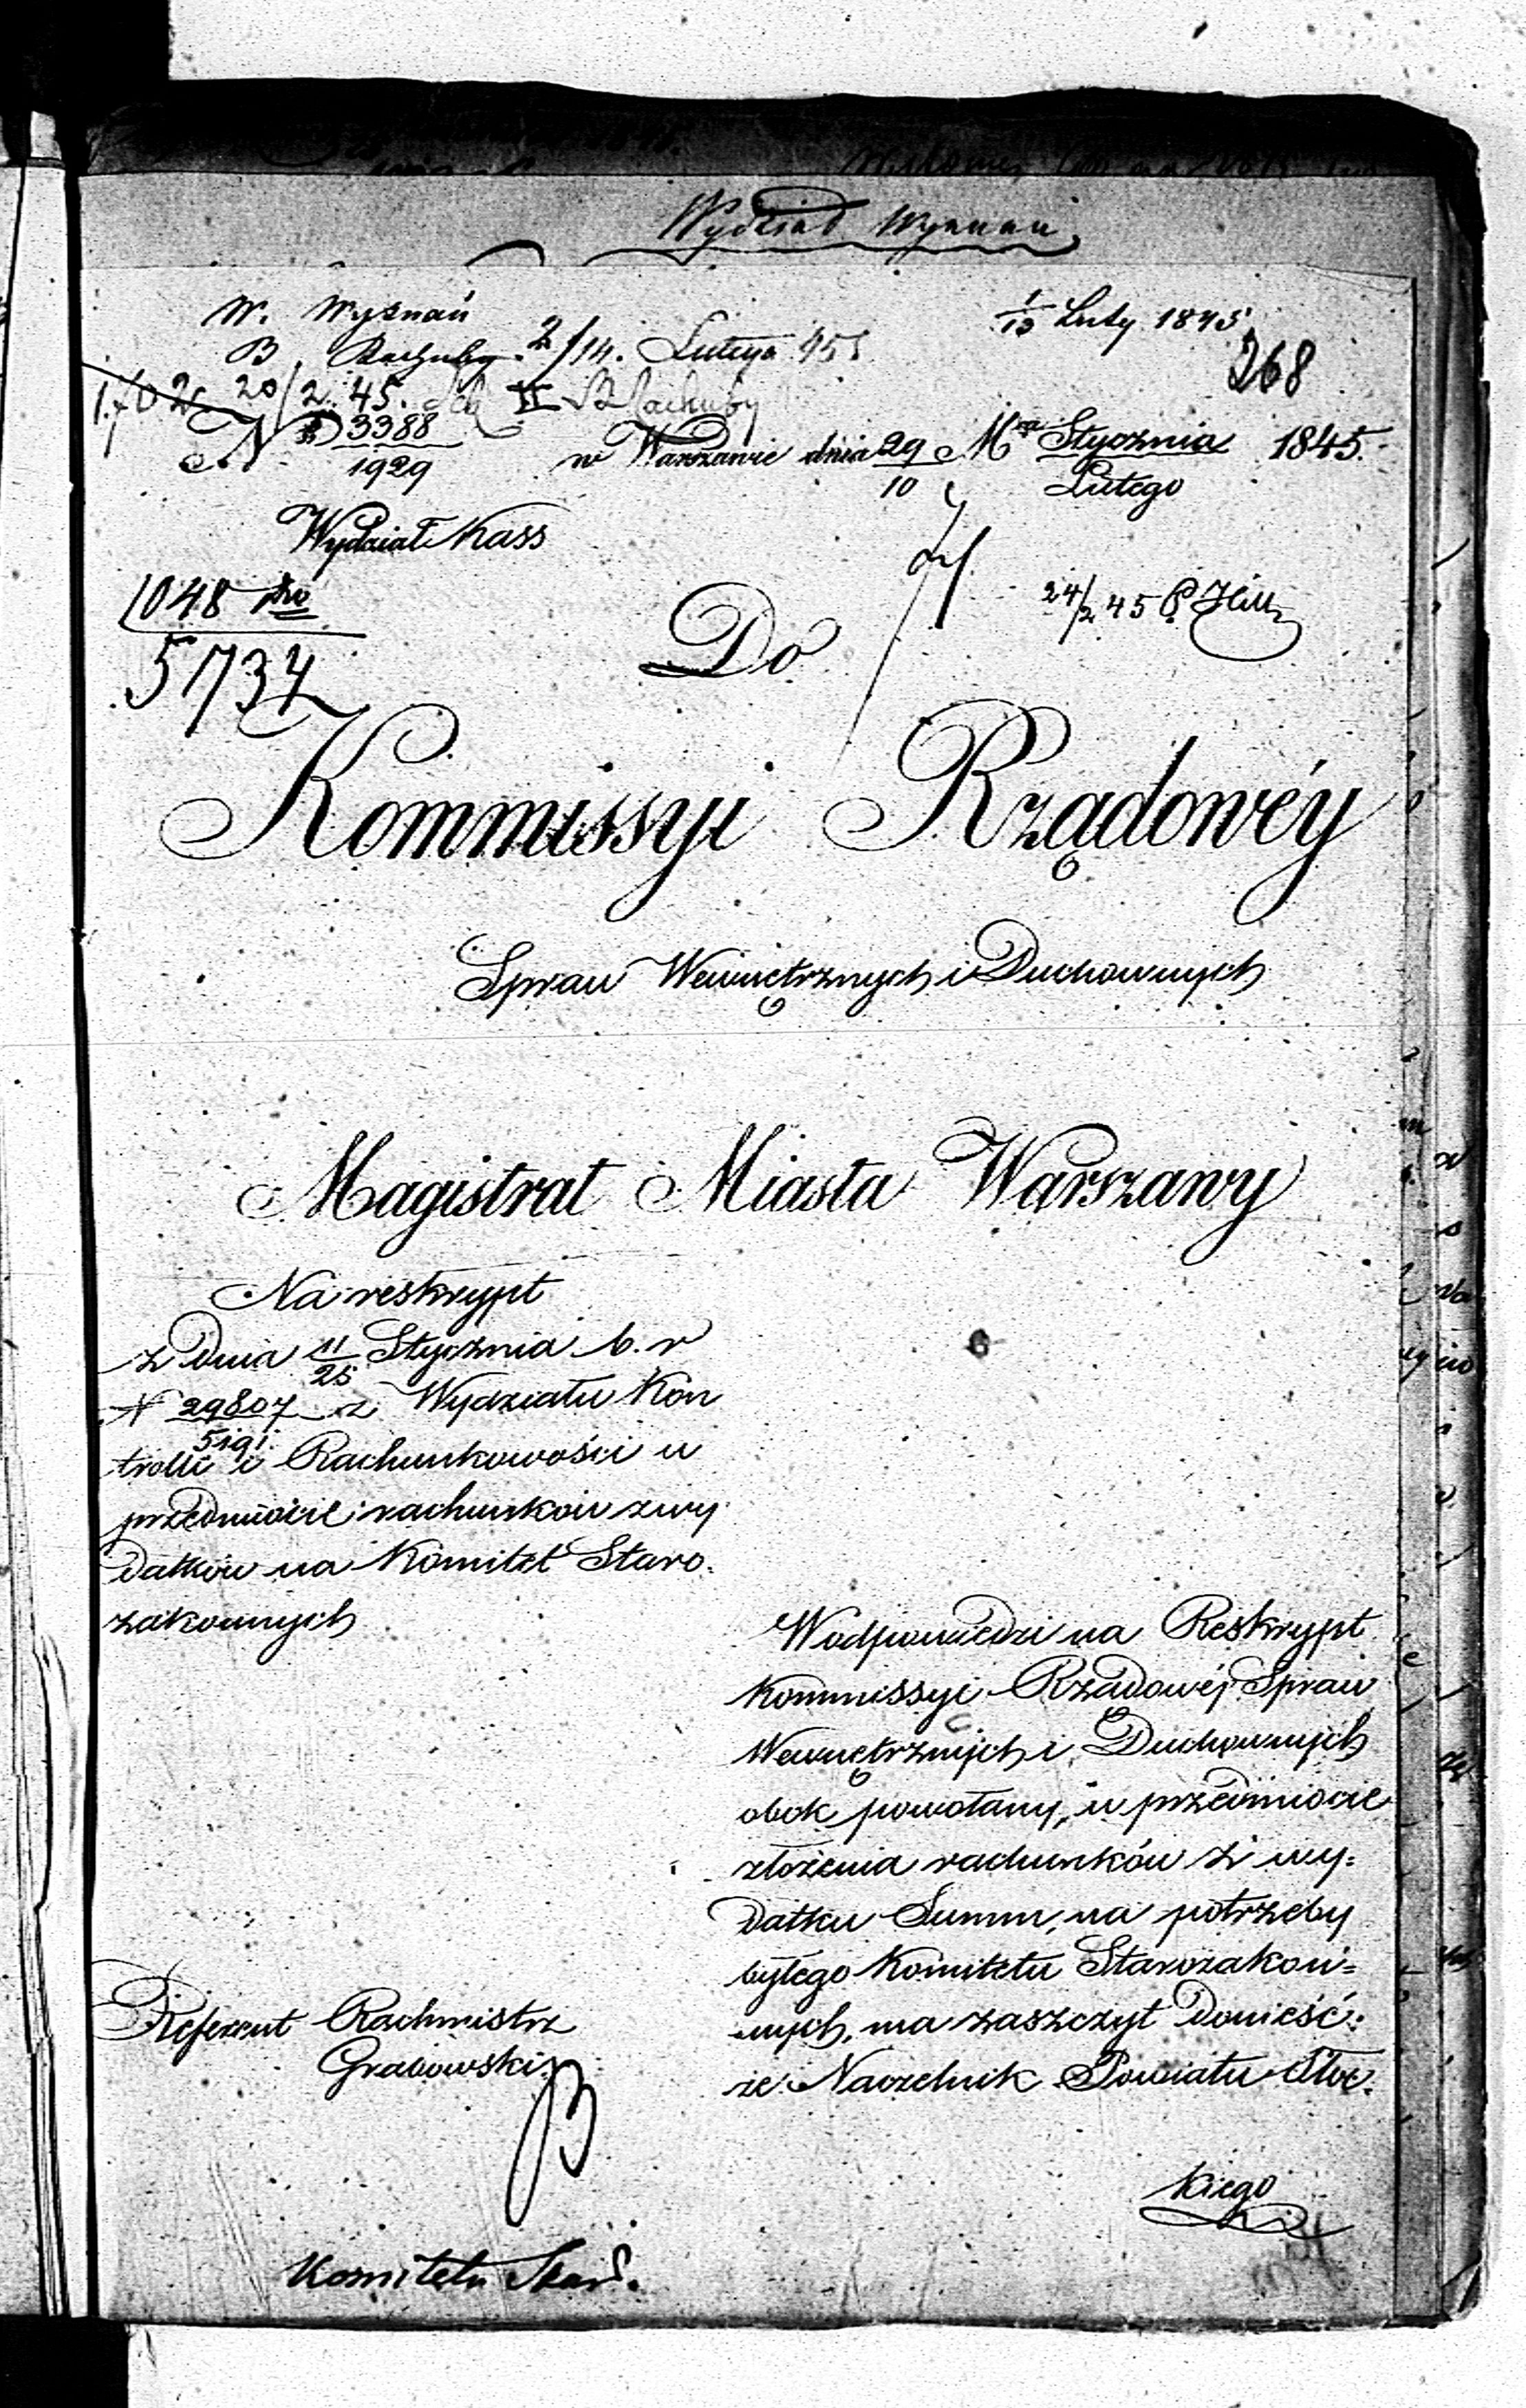 Wydział Wyznań
W. Wyznań
B Rachuby 2/14. Lutego 45
1/13 Luty 1845
268
20/2 45. II B Rachuby
N D 3388/1929
w Warszawie dnia 29/10 Mca Stycznia/Lutego 1845.
Wydział Kass
1048
5734
24/2 45
Do
Kommissyi Rządowéy
Spraw Wewnętrznych i Duchownych
Magistrat Miasta Warszawy
Na reskrypt
z Dnia 11/25 Stycznia b. r
N 29807/5191 z Wydziału Kon
trolli i Rachunkowości w
przedmiocie rachunków z wy
datków na Komitet Staro.
zakonnych
W odpowiedzi na Reskrypt
Kommissyi Rządowéj Spraw
Wewnętrznych i Duchownych
obok powołany, w przedmiocie
złożenia rachunków z wy=
datku Summ, na potrzeby
byłego Komitetu Starozakon=
nych, ma zaszczyt donieść:
że Naczelnik Powiatu Stoc.
kiego
Referent Rachmistrz
Grabowski
Komitetu Star.